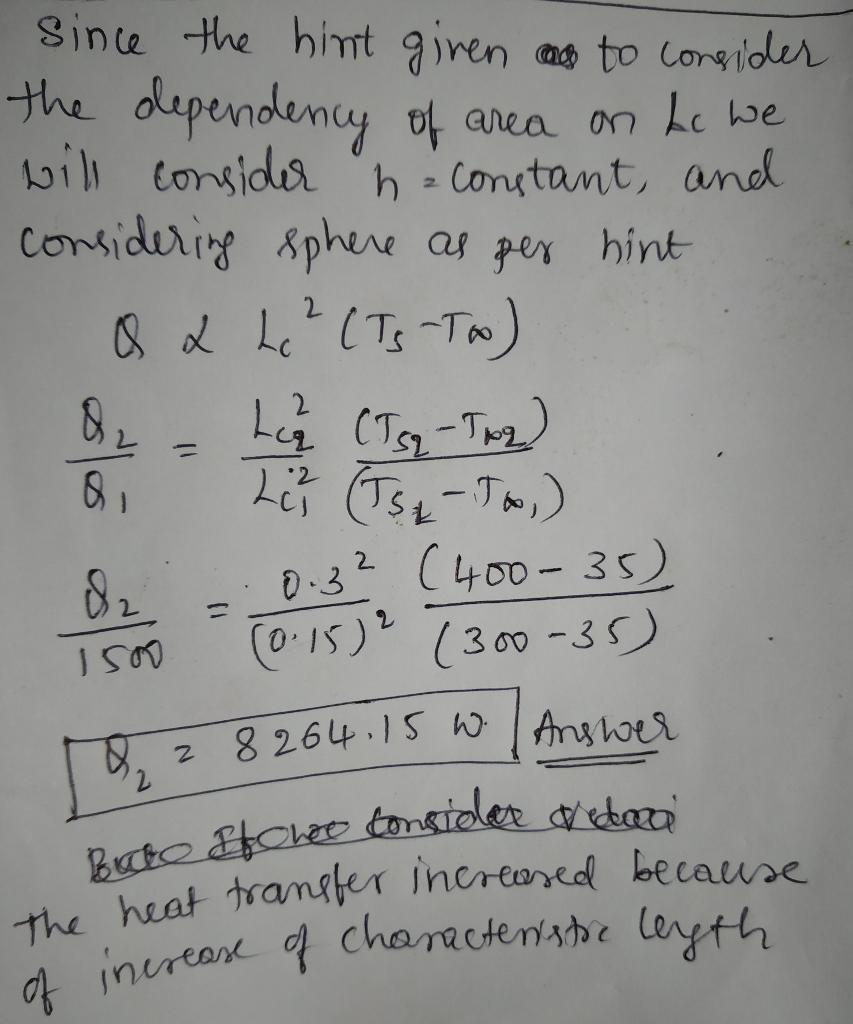 Since the hint given to consider
the dependency of area on Lc we
will consider h = constant, and
considering sphere as per hint
Q α Lc² (Ts - T∞)
Q2/Q1 = Lc2²/Lc1² (Ts2 - T∞2)/(Ts1 - T∞1)
Q2/1500 = 0.3²/(0.15)² (400 - 35)/(300 - 35)
Q2 = 8264.15 W. Answer
The heat transfer increased because
of increase of characteristic length